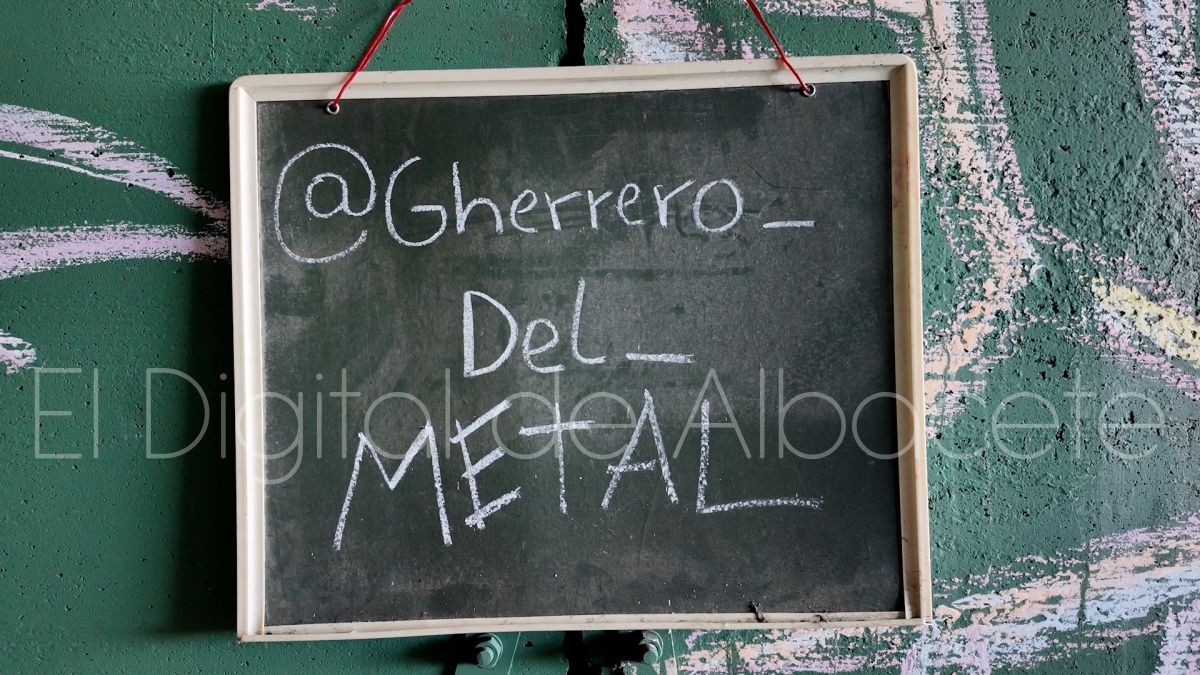 @Gherrero_
Del_
METAL
El Digital de Albacete